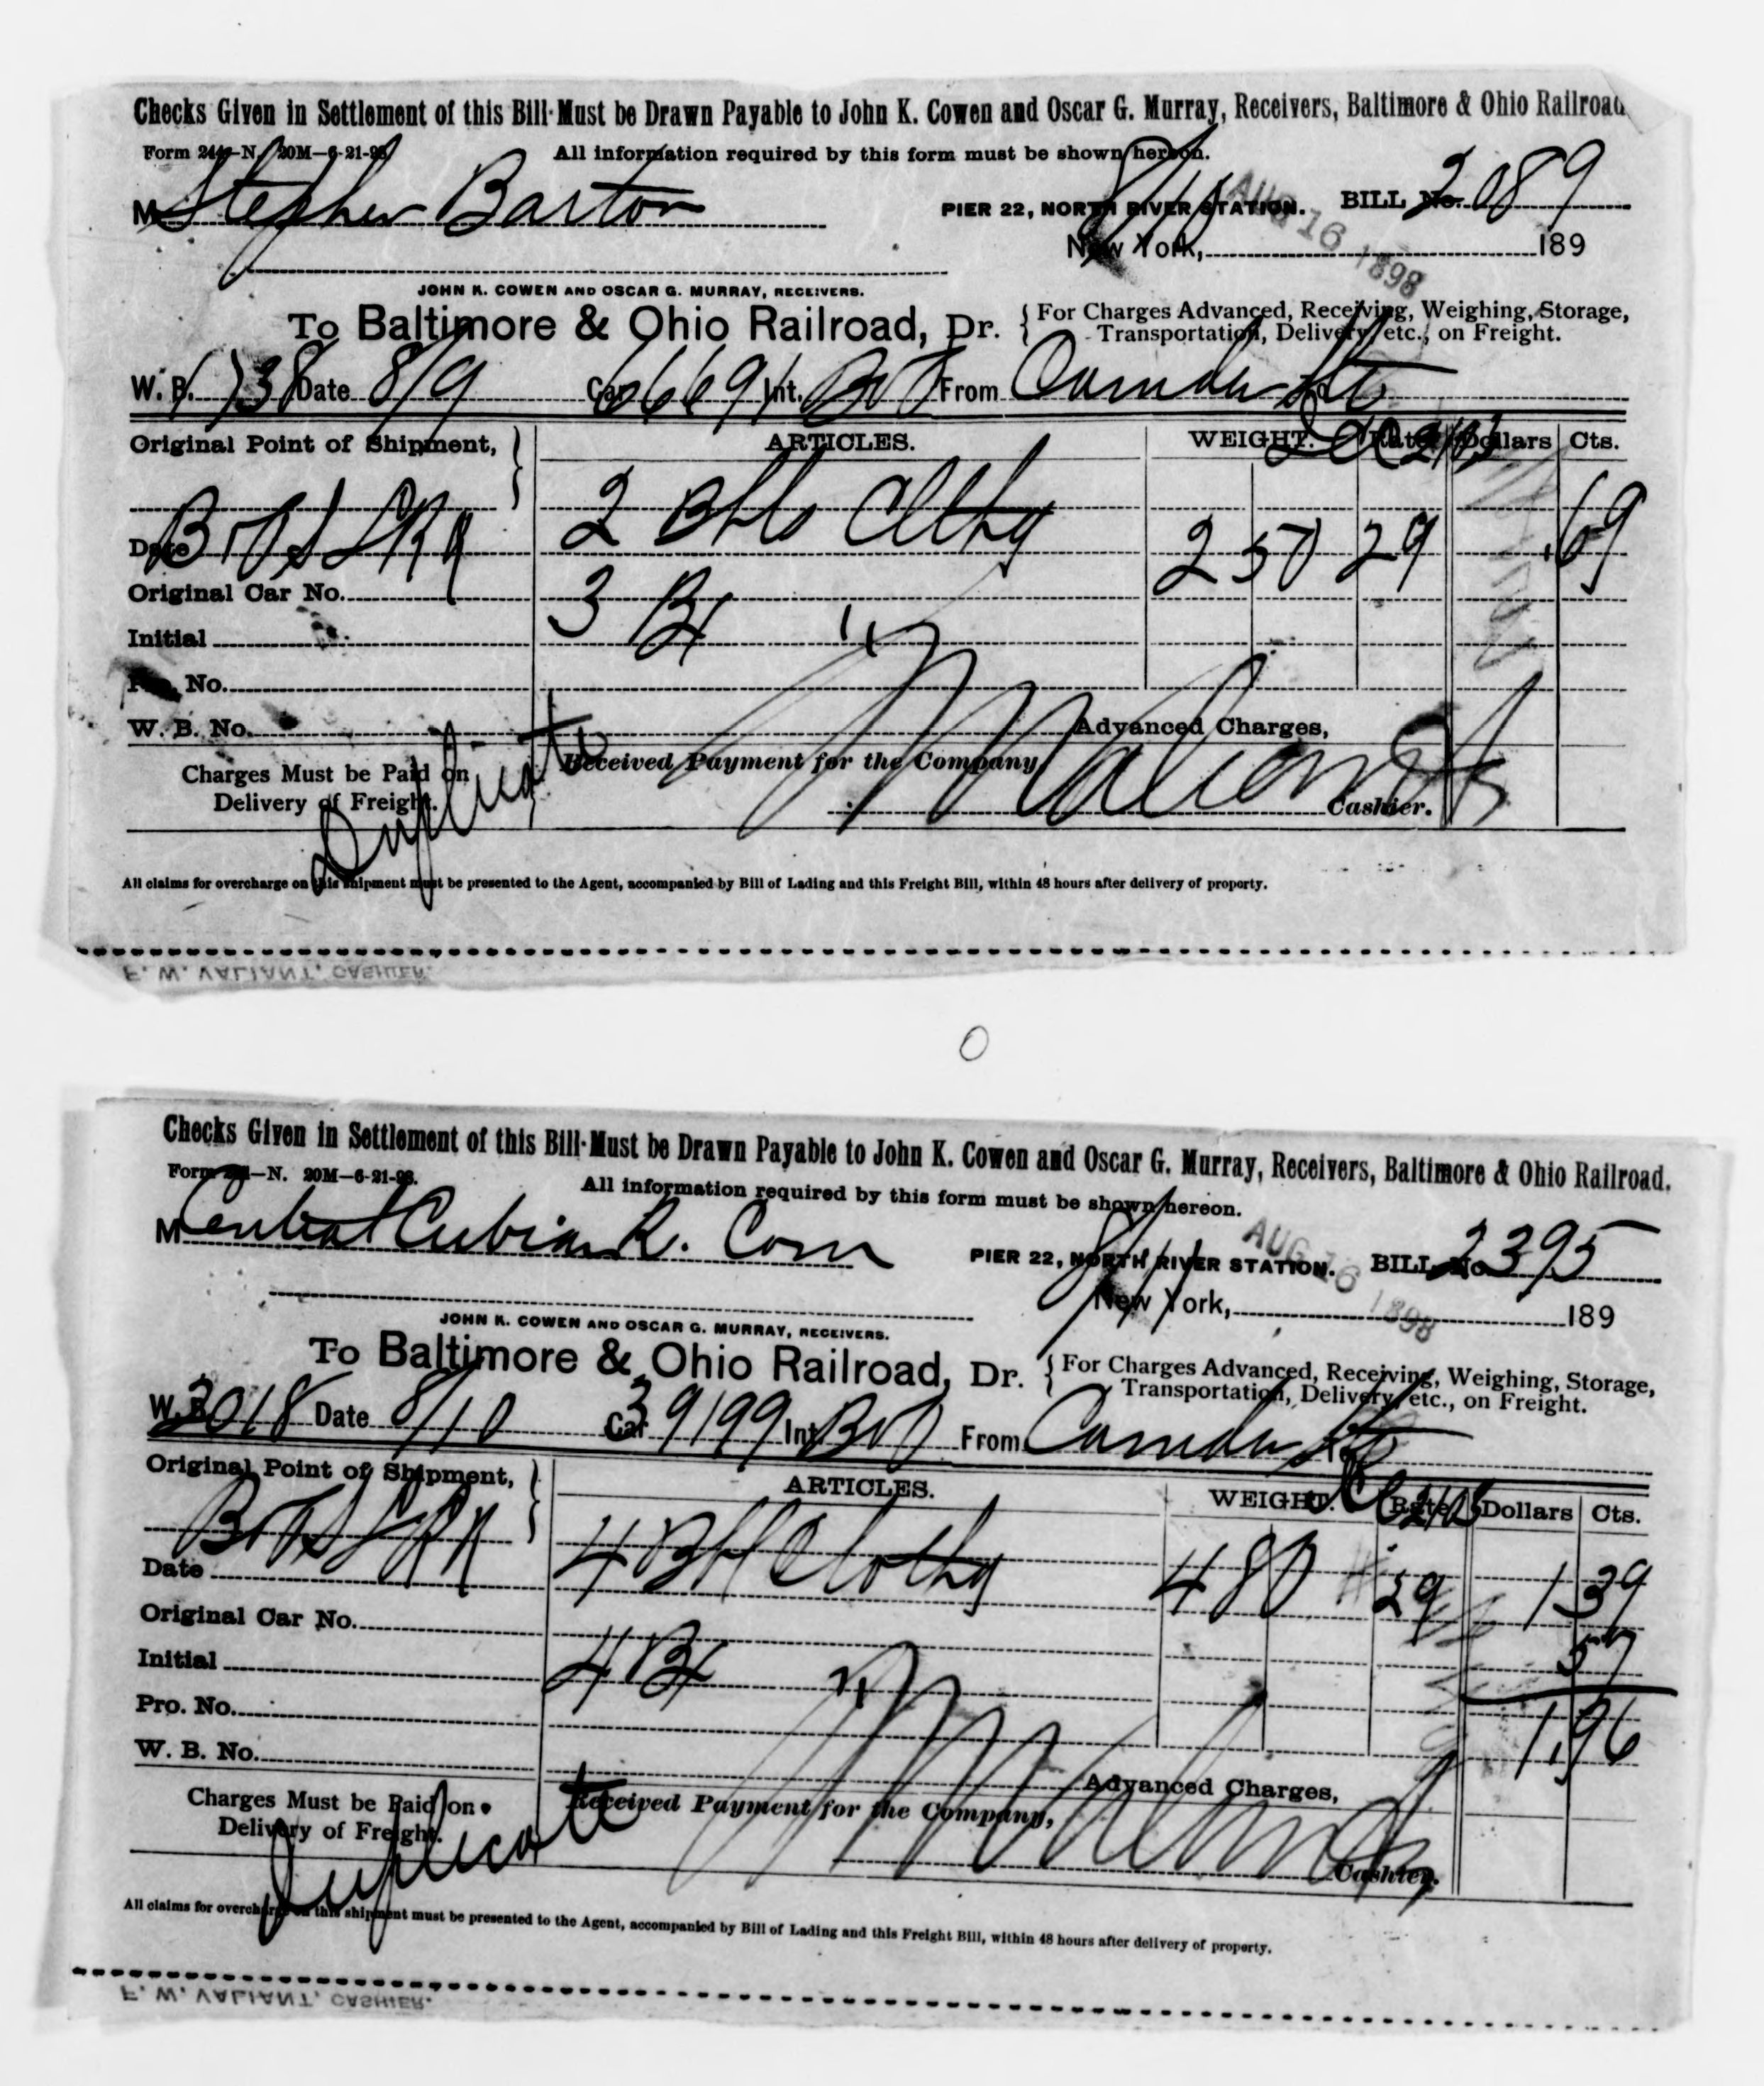 Checks Given in Settlement of this Bill Must be Drawn Payable to John K. Cowen and Oscar G. Murray, Receivers, Baltimore & Ohio Railroad
Form 244-N. 20M-6-21-98
All information required by this form must be shown hereon.
M Stephen Barton
PIER 22, NORTH RIVER STATION. BILL No. 2089
New York, AUG 16 1898 189
JOHN K. COWEN AND OSCAR G. MURRAY, RECEIVERS.
To Baltimore & Ohio Railroad, Dr. { For Charges Advanced, Receiving, Weighing, Storage,
Transportation, Delivery, etc., on Freight.
W. B. 1738 Date 8/9 Car 66691 Int. BO From Camden Sta
Original Point of Shipment, } ARTICLES. WEIGHT. Rate Dollars Cts.
2 Bbls Clthg 250 29 .69
Date
Original Car No.
3 Bx "
Initial
No.
W. B. No.
Advanced Charges,
Charges Must be Paid on
Delivery of Freight.
Duplicate
Received Payment for the Company
Cashier.
All claims for overcharge on this shipment must be presented to the Agent, accompanied by Bill of Lading and this Freight Bill, within 48 hours after delivery of property.
F. W. VALIANT, CASHIER.
Checks Given in Settlement of this Bill Must be Drawn Payable to John K. Cowen and Oscar G. Murray, Receivers, Baltimore & Ohio Railroad.
Form -N. 20M-6-21-98.
All information required by this form must be shown hereon.
M Central Cubian R. Com
PIER 22, NORTH RIVER STATION. BILL No. 2395
New York, AUG 16 1898 189
JOHN K. COWEN AND OSCAR G. MURRAY, RECEIVERS.
To Baltimore & Ohio Railroad, Dr. { For Charges Advanced, Receiving, Weighing, Storage,
Transportation, Delivery, etc., on Freight.
W. B. 3018 Date 8/10 Car 39199 Int BO From Camden Sta
Original Point of Shipment, } ARTICLES. WEIGHT. Rate Dollars Cts.
4 Bbl Clothg 480 29 1 39
Date
Original Car No.
57
4 Bx "
Initial
1.96
Pro. No.
W. B. No.
Advanced Charges,
Charges Must be Paid on
Delivery of Freight.
Duplicate
Received Payment for the Company,
Cashier.
All claims for overcharge on this shipment must be presented to the Agent, accompanied by Bill of Lading and this Freight Bill, within 48 hours after delivery of property.
F. W. VALIANT, CASHIER.